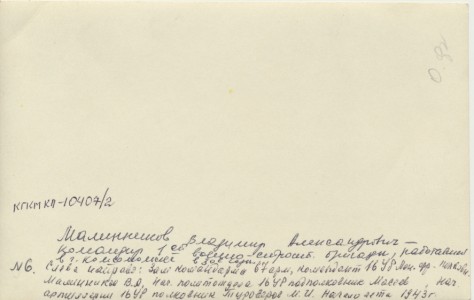 0.92
КГКМ КП-10407/2
Малинников Владимир Александрович –
командир 1 ой военно-строит. бригады, работавшей
в г. Комсомольске
№6. Слева направо: Зам командарма арм, комендант 16 УР
Малинников В.А. Нач. политотдела 16 УР подполковник Нач
артиллерии 16 УР полковник Туроверов М.И. Начало лета 1943 г.